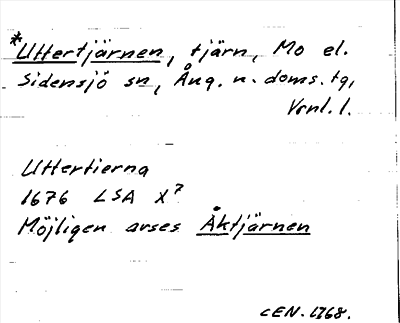 *Uttertjärnen, tjärn, Mo el.
Sidensjö sn, Ång. n. doms. tg,
Vrnl. l.
Uttertierna
1676 LSA X7
Möjligen avses Åktjärnen
CEN. 1768.